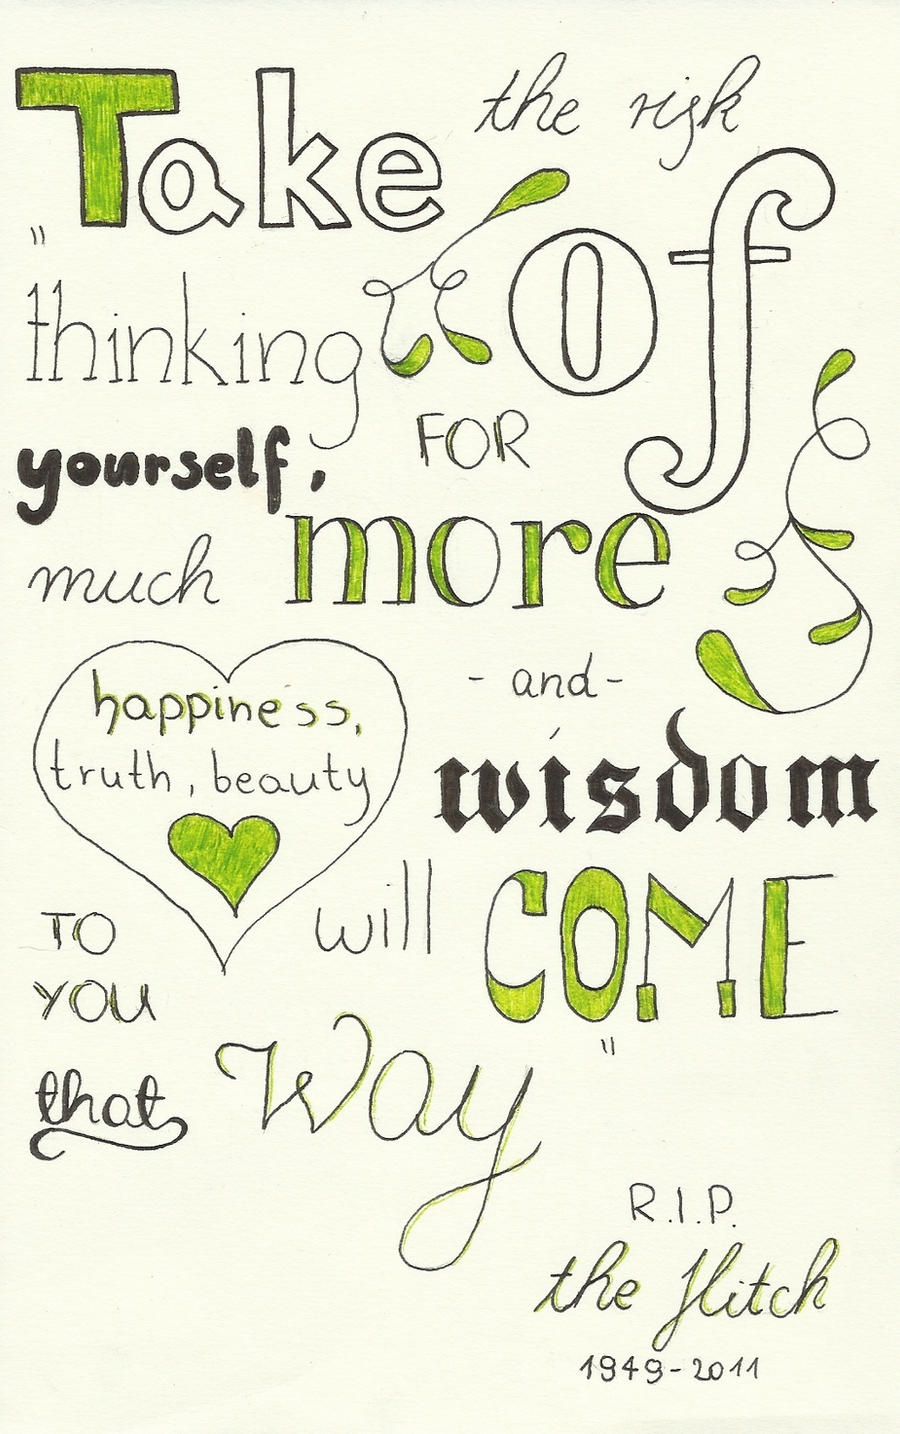 "Take the risk
Of
thinking
FOR
yourself,
much more
happiness,
truth, beauty
- and -
wisdom
will COME
TO
YOU
that Way"
R.I.P.
the Hitch
1949-2011